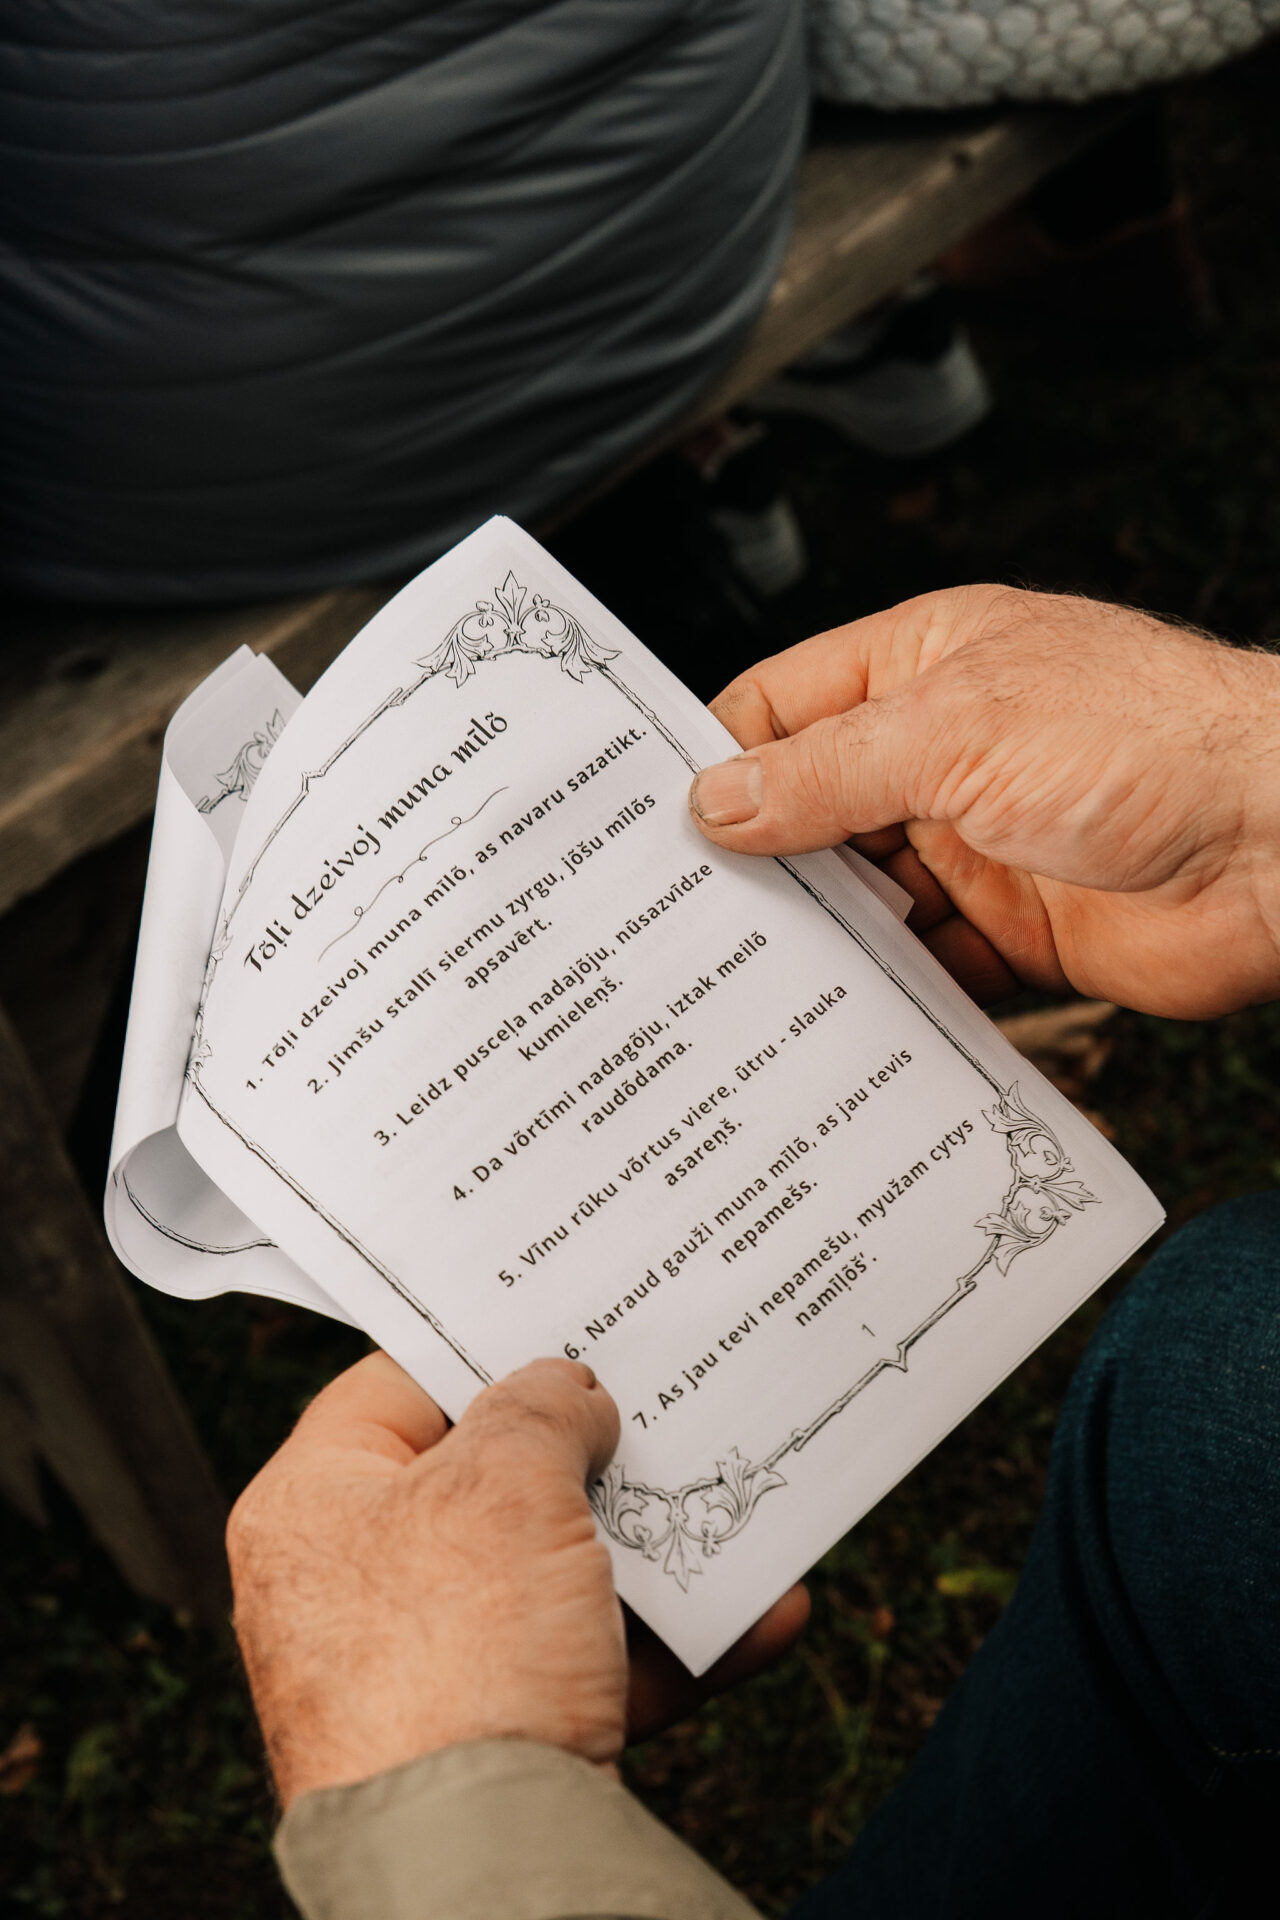 Tōļi dzeivoj muna mīlō
1. Tōļi dzeivoj muna mīlō, as navaru sazatikt.
2. Jimšu stallī siermu zyrgu, jōšu mīlōs
apsavērt.
3. Leidz pusceļa nadajōju, nūsazvīdze
kumieleņš.
4. Da vōrtīmi nadagōju, iztak meilō
raudōdama.
5. Vīnu rūku vōrtus viere, ūtru - slauka
asareņš.
6. Naraud gauži muna mīlō, as jau tevis
nepamešs.
7. As jau tevi nepamešu, myužam cytys
namīļōš'.
1